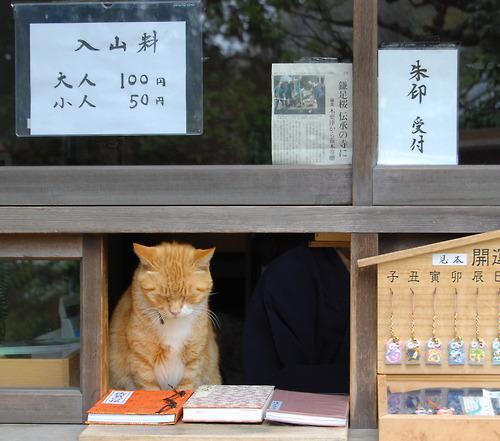 入山料
大人 100円
小人 50円
鎌足桜 伝承の寺に
朱印 受付
見本
開運
子 丑 寅 卯 辰 巳